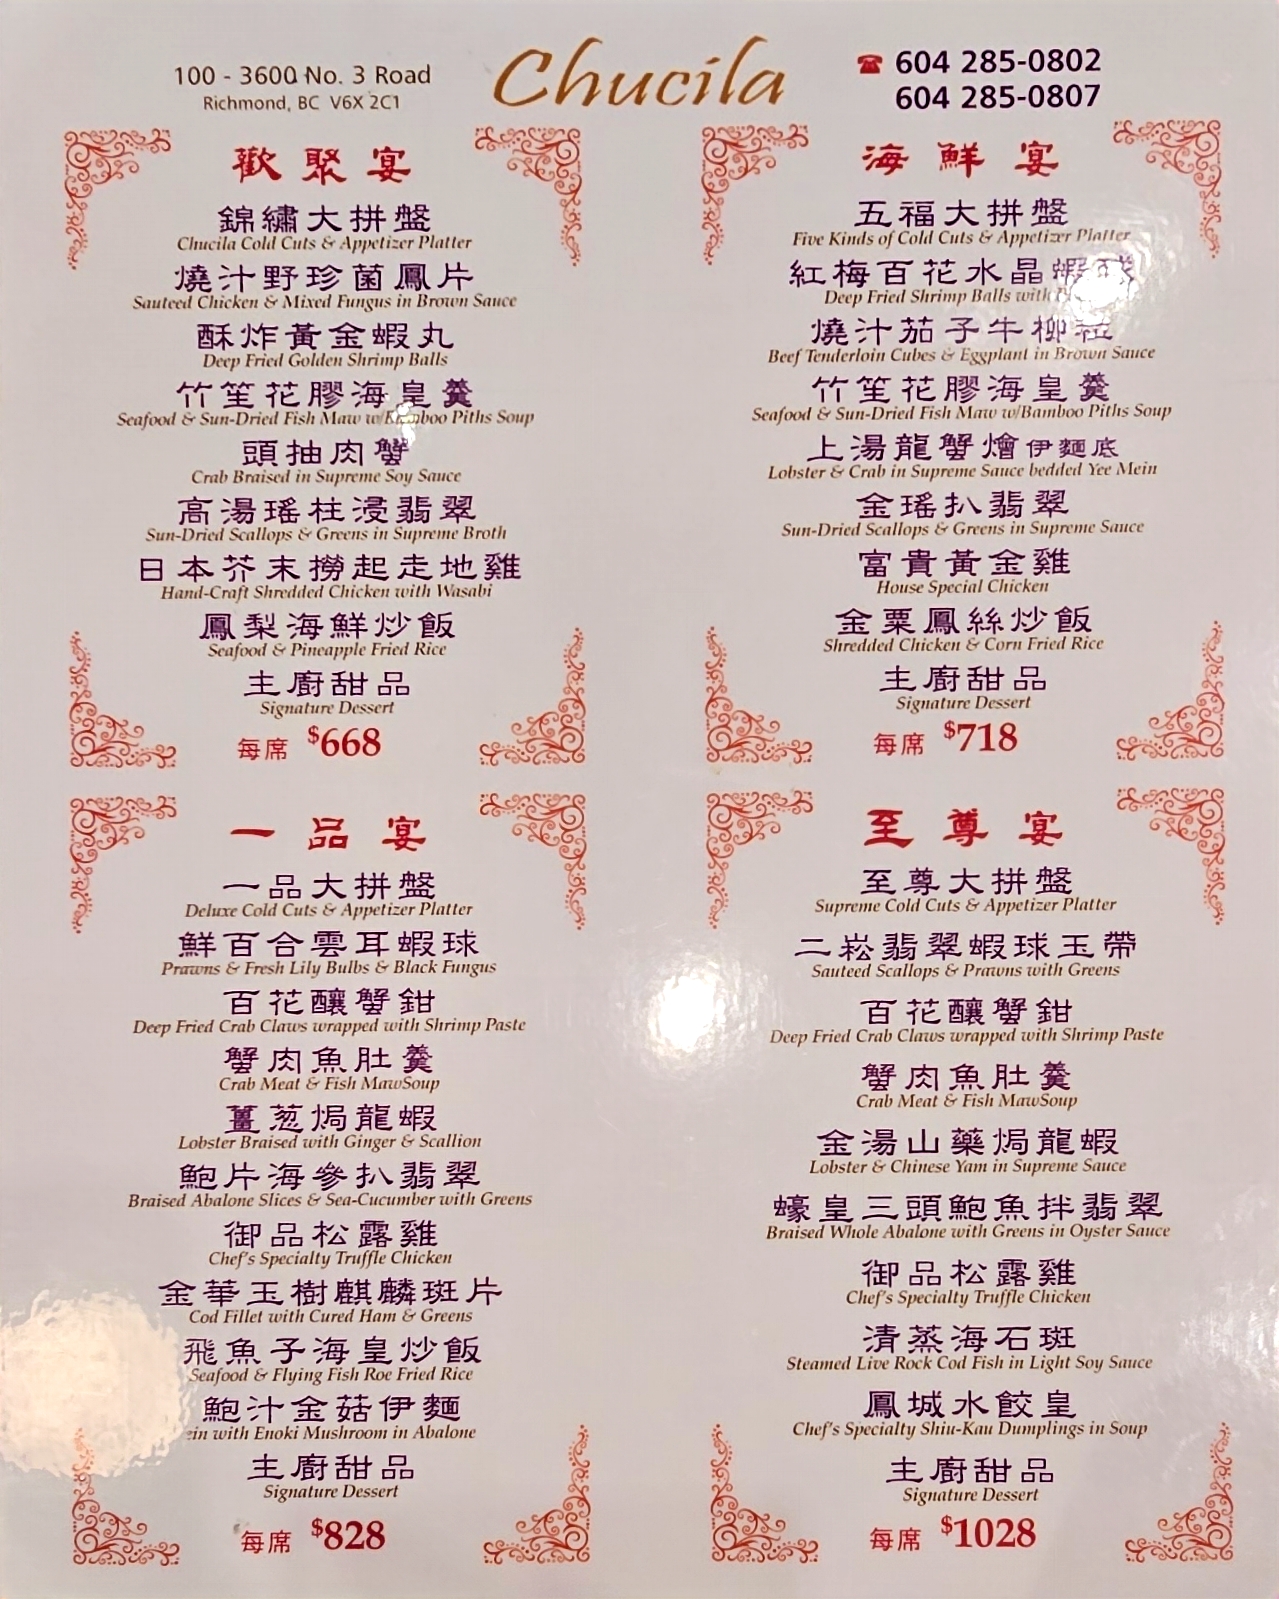 100 - 3600 No. 3 Road
Richmond, BC V6X 2C1
Chucila
☎ 604 285-0802
604 285-0807
歡聚宴
錦繡大拼盤
Chucila Cold Cuts & Appetizer Platter
燒汁野珍菌鳳片
Sauteed Chicken & Mixed Fungus in Brown Sauce
酥炸黃金蝦丸
Deep Fried Golden Shrimp Balls
竹笙花膠海皇羹
Seafood & Sun-Dried Fish Maw w/Bamboo Piths Soup
頭抽肉蟹
Crab Braised in Supreme Soy Sauce
高湯瑤柱浸翡翠
Sun-Dried Scallops & Greens in Supreme Broth
日本芥末撈起走地雞
Hand-Craft Shredded Chicken with Wasabi
鳳梨海鮮炒飯
Seafood & Pineapple Fried Rice
主廚甜品
Signature Dessert
每席 $668
海鮮宴
五福大拼盤
Five Kinds of Cold Cuts & Appetizer Platter
紅梅百花水晶蝦球
Deep Fried Shrimp Balls with
燒汁茄子牛柳粒
Beef Tenderloin Cubes & Eggplant in Brown Sauce
竹笙花膠海皇羹
Seafood & Sun-Dried Fish Maw w/Bamboo Piths Soup
上湯龍蟹燴伊麵底
Lobster & Crab in Supreme Sauce bedded Yee Mein
金瑤扒翡翠
Sun-Dried Scallops & Greens in Supreme Sauce
富貴黃金雞
House Special Chicken
金粟鳳絲炒飯
Shredded Chicken & Corn Fried Rice
主廚甜品
Signature Dessert
每席 $718
一品宴
一品大拼盤
Deluxe Cold Cuts & Appetizer Platter
鮮百合雲耳蝦球
Prawns & Fresh Lily Bulbs & Black Fungus
百花釀蟹鉗
Deep Fried Crab Claws wrapped with Shrimp Paste
蟹肉魚肚羹
Crab Meat & Fish MawSoup
薑葱焗龍蝦
Lobster Braised with Ginger & Scallion
鮑片海參扒翡翠
Braised Abalone Slices & Sea-Cucumber with Greens
御品松露雞
Chef's Specialty Truffle Chicken
金華玉樹麒麟斑片
Cod Fillet with Cured Ham & Greens
飛魚子海皇炒飯
Seafood & Flying Fish Roe Fried Rice
鮑汁金菇伊麵
with Enoki Mushroom in Abalone
主廚甜品
Signature Dessert
每席 $828
至尊宴
至尊大拼盤
Supreme Cold Cuts & Appetizer Platter
二崧翡翠蝦球玉帶
Sauteed Scallops & Prawns with Greens
百花釀蟹鉗
Deep Fried Crab Claws wrapped with Shrimp Paste
蟹肉魚肚羹
Crab Meat & Fish MawSoup
金湯山藥焗龍蝦
Lobster & Chinese Yam in Supreme Sauce
蠔皇三頭鮑魚拌翡翠
Braised Whole Abalone with Greens in Oyster Sauce
御品松露雞
Chef's Specialty Truffle Chicken
清蒸海石斑
Steamed Live Rock Cod Fish in Light Soy Sauce
鳳城水餃皇
Chef's Specialty Shiu-Kau Dumplings in Soup
主廚甜品
Signature Dessert
每席 $1028